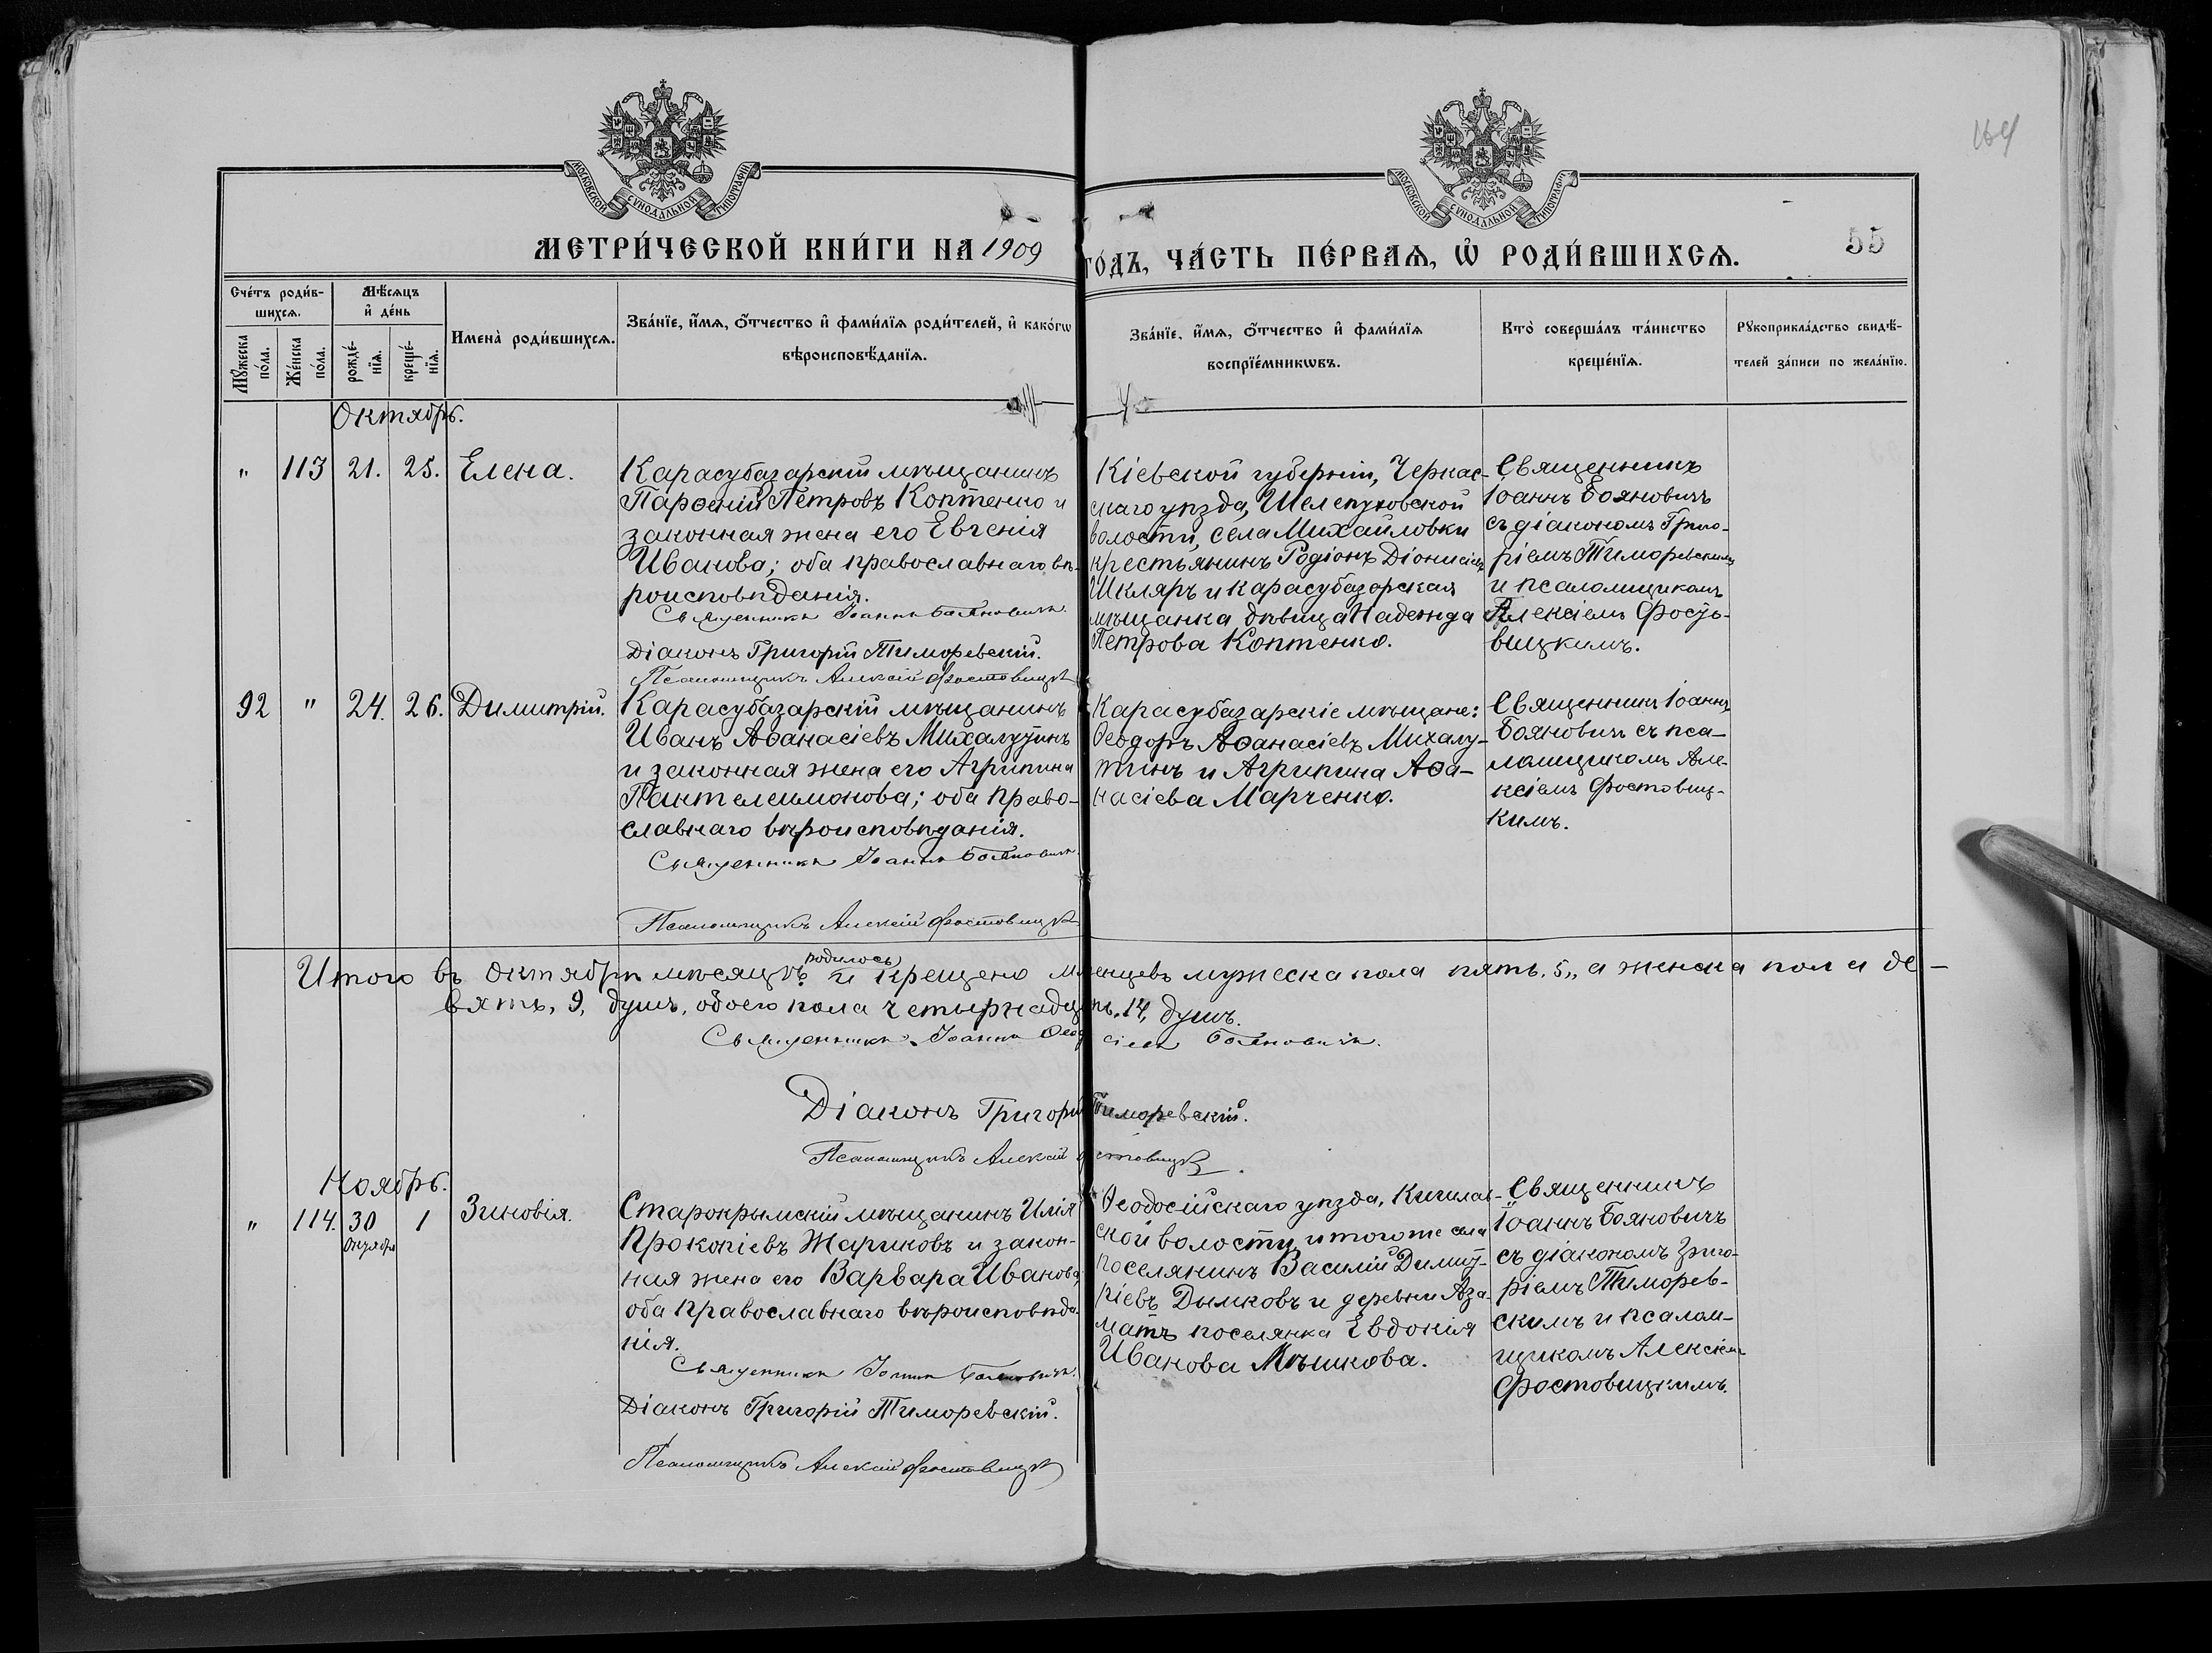 164
МОСКОВСКОЙ СѴНОДАЛЬНОЙ ТИПОГРАФІИ.
МОСКОВСКОЙ СѴНОДАЛЬНОЙ ТИПОГРАФІИ.
МЕТРИ́ЧЕСКОЙ КНИ́ГИ НА 1909
ГО́ДЪ, ЧА́СТЬ ПЕ́РВАѦ, Ѡ҆ РОДИ́ВШИХСѦ.
55
Сче́тъ роди́в-
шихсѧ.
Мꙋ́жеска
по́ла.
Же́нска
по́ла.
Мѣ́сѧцъ
и҆ де́нь
рожде́-
нїѧ.
креще́-
нїѧ.
Имена̀ роди́вшихсѧ.
Зва́нїе, и҆́мѧ, ѻ҆́тчество и҆ фами́лїѧ роди́телей, и҆ како́гѡ
вѣроисповѣ́данїѧ.
Зва́нїе, и҆́мѧ, ѻ҆́тчество и҆ фами́лїѧ
воспрїе́мникѡвъ.
Кто̀ соверша́лъ та́инство
креще́нїѧ.
Рꙋкоприкла́дство свидѣ́-
телей за́писи по жела́нїю.
Октябрь.
" 113 21. 25. Елена.
Карасубазарскій мѣщанинъ
Парѳеній Петровъ Коптенко и
законная жена его Евгенія
Иванова; оба православнаго вѣ-
роисповѣданія.
Священникъ Іоаннъ Бояновичъ.
Діаконъ Григорій Тиморевскій.
Псаломщикъ Алексій Фостовицк
Кіевской губерніи, Черкас-
скаго уѣзда, Шелепуховской
волости, села Михайловки
крестьянинъ Родіонъ Діонисіевъ
Шкляръ и карасубазарская
мѣщанка дѣвица Надежда
Петрова Коптенко.
Священникъ
Іоаннъ Бояновичъ
съ діакономъ Григо-
ріемъ Тиморевскимъ
и псаломщикомъ
Алексіемъ Фосто-
вицкимъ.
92 " 24. 26. Димитрій.
Карасубазарскій мѣщанинъ
Иванъ Аѳанасіевъ Михалутинъ
и законная жена его Агрипина
Пантелеимонова; оба право-
славнаго вѣроисповѣданія.
Священникъ Іоаннъ Бояновичъ
Псаломщикъ Алексій Фостовицк
Карасубазарскіе мѣщане:
Ѳеодоръ Аѳанасіевъ Михалу-
тинъ и Агрипина Аѳа-
насіева Марченко.
Священникъ Іоаннъ
Бояновичъ съ пса-
ломщикомъ Але-
ксіемъ Фостовиц-
кимъ.
Итого въ октябрѣ мѣсяцѣ родилось и крещено младенцевъ мужеска пола пять, 5, а женска пола де-
вять, 9, душъ, обоего пола четырнадцать, 14, душъ.
Священникъ Іоаннъ Ѳеодосіевъ Бояновичъ.
Діаконъ Григорій Тиморевскій.
Псаломщикъ Алексій Фостовицк
Ноябрь.
" 114. 30 1 Зиновія.
Октября
Старокрымскій мѣщанинъ Илія
Прокопіевъ Жариковъ и закон-
ная жена его Варвара Иванова,
оба православнаго вѣроисповѣда-
нія.
Священникъ Іоаннъ Бояновичъ.
Діаконъ Григорій Тиморевскій.
Псаломщикъ Алексій Фостовицк
Ѳеодосійскаго уѣзда,
ской волости и того же села
поселянинъ Василій Димит-
ріевъ Дымковъ и деревни Аза-
матъ поселянка Евдокія
Иванова Мѣшкова.
Священникъ
Іоаннъ Бояновичъ
съ діакономъ Григо-
ріемъ Тиморев-
скимъ и псалом-
щикомъ Алексіемъ
Фостовицкимъ.